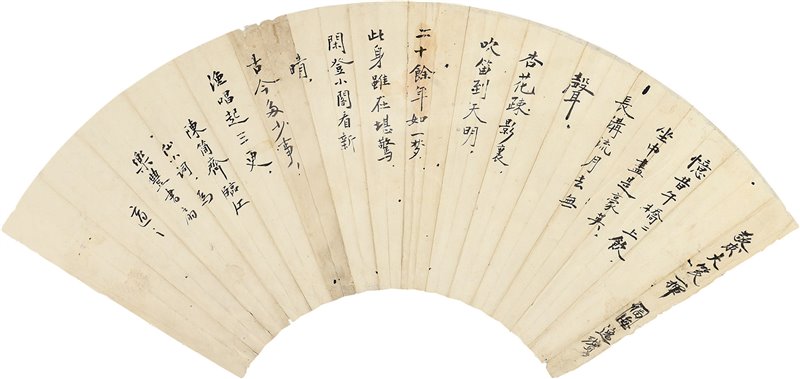 憶昔午橋〻上飲，
坐中盡是豪英。
長溝流月去無
聲。
杏花疎影裏，
吹笛到天明。
二十餘年如一梦，
此身雖在堪驚
閑登小閣看新
晴。
古今多少事，
漁唱起三更。
陳簡齋臨江
仙小詞 為
書扇